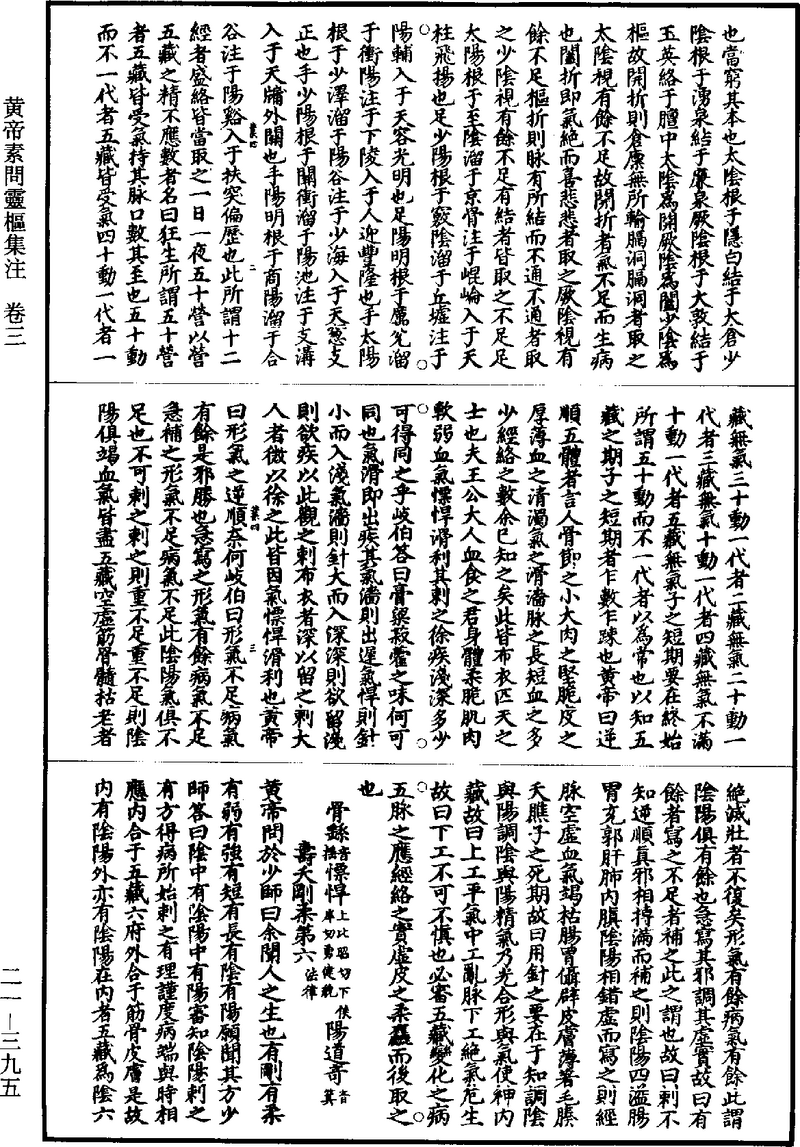 也當窮其本也太陰根于隱白結于大倉少
陰根于湧泉結于廉泉厥陰根于大敦結于
玉英絡于膻中太陰為開厥陰為闔少陰為
樞故開折則倉廩無所輸膈洞膈洞者取之
太陰視有餘不足故開折者氣不足而生病
也闔折即氣絶而喜悲悲者取之厥陰視有
餘不足樞折則脉有所結而不通不通者取
之少陰視有餘不足有結者皆取之不足足
太陽根于至陰溜于京骨注于崐崘入于天
柱飛揚也足少陽根于竅陰溜于丘墟注于
陽輔入于天容光明也足陽明根于厲兊溜
于衝陽注于下陵入于人迎豐隆也手太陽
根于少澤溜于陽谷注于少海入于天窻支
正也手少陽根于關衝溜于陽池注于支溝
入于天牖外關也手陽明根于商陽溜于合
谷注于陽谿入于扶突偏歷也此所謂十二
經者盛絡皆當取之一日一夜五十營以營
五藏之精不應數者名曰狂生所謂五十營
者五藏皆受氣持其脉口數其至也五十動
而不一代者五藏皆受氣四十動一代者一
藏無氣三十動一代者二藏無氣二十動一
代者三藏無氣十動一代者四藏無氣不滿
十動一代者五藏無氣予之短期要在終始
所謂五十動而不一代者以為常也以知五
藏之期予之短期者乍數乍踈也黃帝曰逆
順五體者言人骨節之小大肉之堅脆皮之
厚薄血之清濁氣之滑濇脉之長短血之多
少經絡之數余已知之矣此皆布衣匹夫之
士也夫王公大人血食之君身體柔脆肌肉
軟弱血氣慓悍滑利其刺之徐疾淺深多少
可得同之乎岐伯荅曰膏粱菽藿之味何可
同也氣滑即出疾其氣濇則出遲氣悍則針
小而入淺氣濇則針大而入深深則欲留淺
則欲疾以此觀之刺布衣者深以留之刺大
人者微以徐之此皆因氣慓悍滑利也黃帝
曰形氣之逆順奈何岐伯曰形氣不足病氣
有餘是邪勝也急寫之形氣有餘病氣不足
急補之形氣不足病氣不足此陰陽氣俱不
足也不可刺之刺之則重不足重不足則陰
陽俱竭血氣皆盡五藏空虛筋骨髓枯老者
絶滅壯者不復矣形氣有餘病氣有餘此謂
陰陽俱有餘也急寫其邪調其虛實故曰有
餘者寫之不足者補之此之謂也故曰刺不
知逆順真邪相搏滿而補之則陰陽四溢腸
胃充郭肝肺內䐜陰陽相錯虛而寫之則經
脉空虛血氣竭枯腸胃㒤辟皮膚薄著毛腠
夭膲予之死期故曰用針之要在于知調陰
與陽調陰與陽精氣乃光合形與氣使神內
藏故曰上工平氣中工亂脉下工絶氣危生
故曰下工不可不慎也必審五藏變化之病
五脉之應經絡之實虛皮之柔麤而後取之
也
骨繇音搖慓悍上比昭切下侯旰切勇健貌陽道奇音箕
壽夭剛柔第六法律
黃帝問於少師曰余聞人之生也有剛有柔
有弱有強有短有長有陰有陽願聞其方少
師荅曰陰中有陰陽中有陽審知陰陽刺之
有方得病所始刺之有理謹度病端與時相
應內合于五藏六府外合于筋骨皮膚是故
內有陰陽外亦有陰陽在內者五藏為陰六
黃帝素問靈樞集注　卷三
二一—三九五